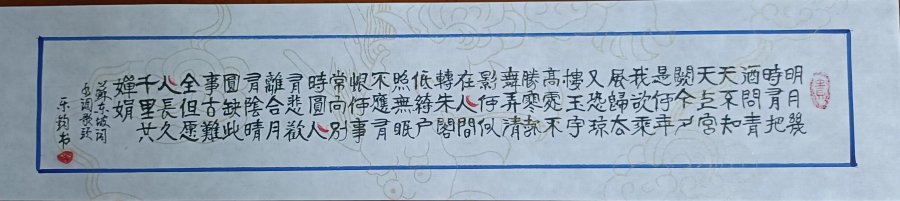 明月幾
時有把
酒問青
天不知
天上宮
闕今夕
是何年
我欲乘
風歸去
又恐琼
樓玉宇
高處不
勝寒起
舞弄清
影何似
在人間
轉朱閣
低綺户
照無眠
不應有
恨何事
常向别
時圓人
有悲歡
離合月
有陰晴
圓缺此
事古難
全但愿
人長久
千里共
嬋娟
蘇東坡词
水调歌头